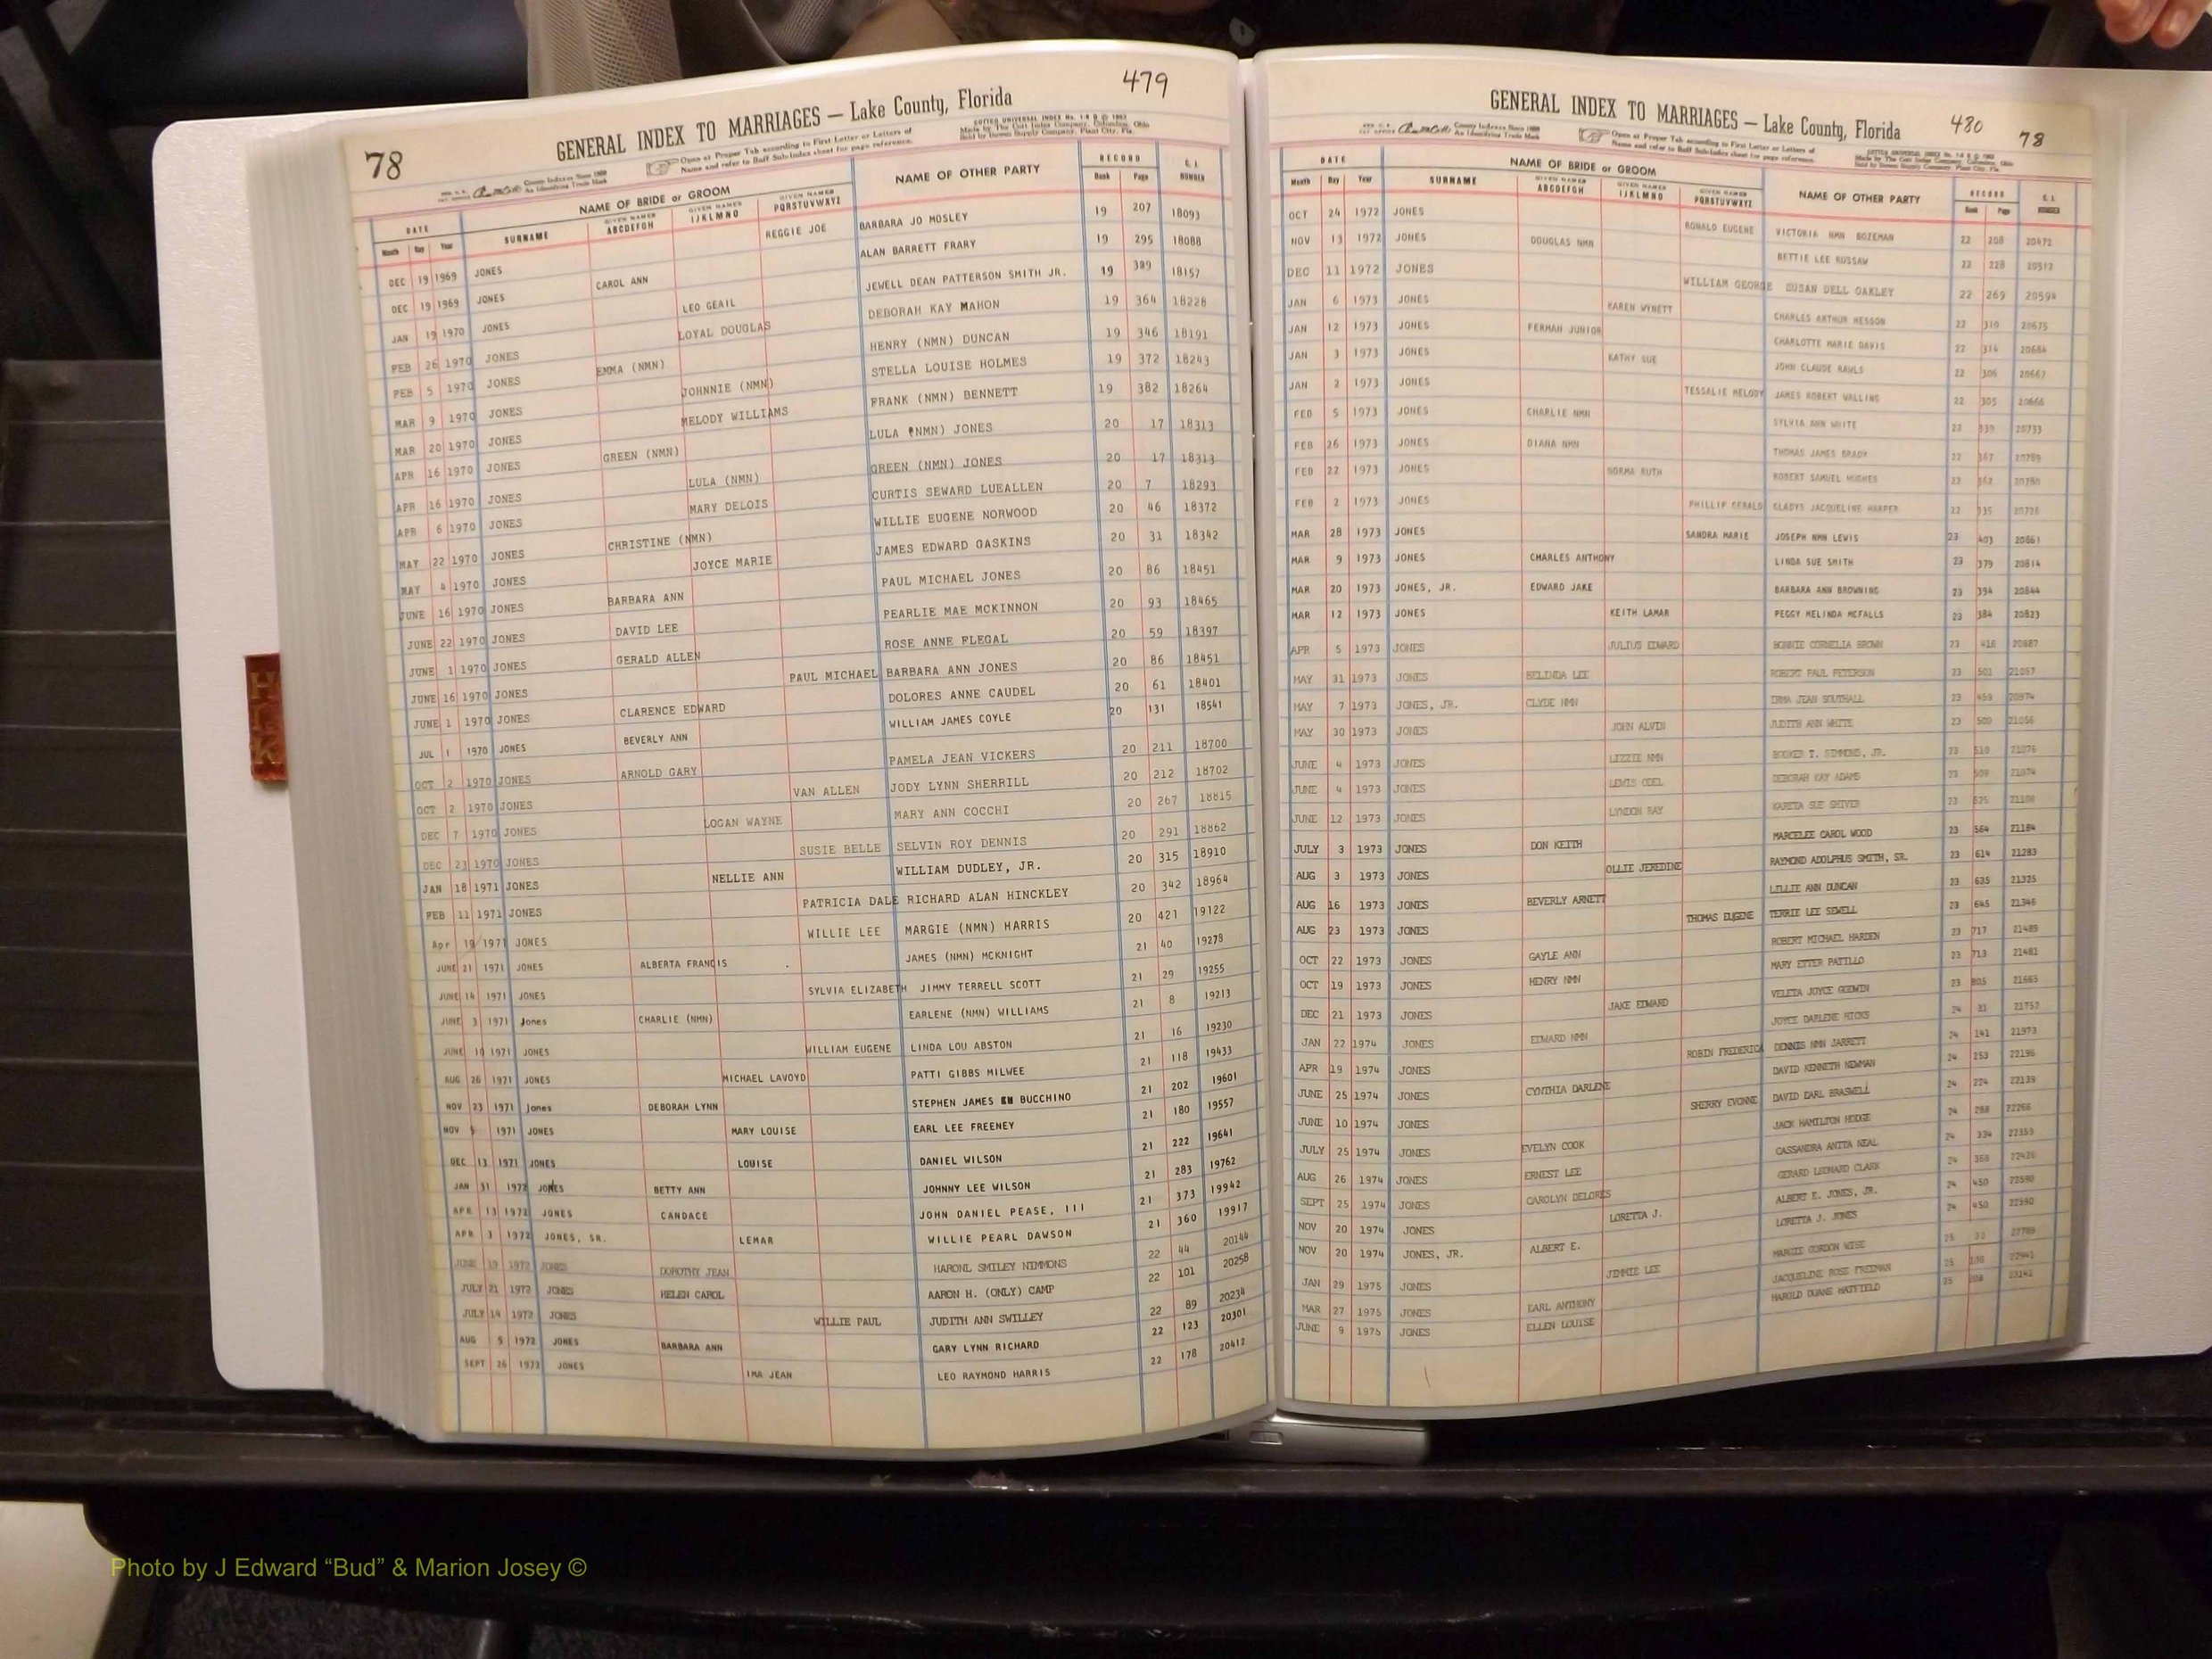 479
78
GENERAL INDEX TO MARRIAGES — Lake County, Florida
Open at Proper Tab according to First Letter or Letters of
Name and refer to Buff Sub-Index sheet for page reference.
DATE NAME OF BRIDE or GROOM NAME OF OTHER PARTY RECORD
Month Day Year SURNAME GIVEN NAMES ABCDEFGH GIVEN NAMES IJKLMNO GIVEN NAMES PQRSTUVWXYZ Book Page NUMBER
DEC 19 1969 JONES REGGIE JOE BARBARA JO MOSLEY 19 207 18093
DEC 19 1969 JONES CAROL ANN ALAN BARRETT FRARY 19 295 18088
JAN 19 1970 JONES LEO GEAIL JEWELL DEAN PATTERSON SMITH JR. 19 389 18157
FEB 26 1970 JONES LOYAL DOUGLAS DEBORAH KAY MAHON 19 364 18228
FEB 5 1970 JONES EMMA (NMN) HENRY (NMN) DUNCAN 19 346 18191
MAR 9 1970 JONES JOHNNIE (NMN) STELLA LOUISE HOLMES 19 372 18243
MAR 20 1970 JONES MELODY WILLIAMS FRANK (NMN) BENNETT 19 382 18264
APR 16 1970 JONES GREEN (NMN) LULA (NMN) JONES 20 17 18313
APR 16 1970 JONES LULA (NMN) GREEN (NMN) JONES 20 17 18313
APR 6 1970 JONES MARY DELOIS CURTIS SEWARD LUEALLEN 20 7 18293
MAY 22 1970 JONES CHRISTINE (NMN) WILLIE EUGENE NORWOOD 20 46 18372
MAY 4 1970 JONES JOYCE MARIE JAMES EDWARD GASKINS 20 31 18342
JUNE 16 1970 JONES BARBARA ANN PAUL MICHAEL JONES 20 86 18451
JUNE 22 1970 JONES DAVID LEE PEARLIE MAE MCKINNON 20 93 18465
JUNE 1 1970 JONES GERALD ALLEN ROSE ANNE FLEGAL 20 59 18397
JUNE 16 1970 JONES PAUL MICHAEL BARBARA ANN JONES 20 86 18451
JUNE 1 1970 JONES CLARENCE EDWARD DOLORES ANNE CAUDEL 20 61 18401
JUL 1 1970 JONES BEVERLY ANN WILLIAM JAMES COYLE 20 131 18541
OCT 2 1970 JONES ARNOLD GARY PAMELA JEAN VICKERS 20 211 18700
OCT 2 1970 JONES VAN ALLEN JODY LYNN SHERRILL 20 212 18702
DEC 7 1970 JONES LOGAN WAYNE MARY ANN COCCHI 20 267 18815
DEC 23 1970 JONES SUSIE BELLE SELVIN ROY DENNIS 20 291 18862
JAN 18 1971 JONES NELLIE ANN WILLIAM DUDLEY, JR. 20 315 18910
FEB 11 1971 JONES PATRICIA DALE RICHARD ALAN HINCKLEY 20 342 18964
Apr 19 1971 JONES WILLIE LEE MARGIE (NMN) HARRIS 20 421 19122
JUNE 21 1971 JONES ALBERTA FRANCIS JAMES (NMN) MCKNIGHT 21 40 19278
JUNE 14 1971 JONES SYLVIA ELIZABETH JIMMY TERRELL SCOTT 21 29 19255
JUNE 3 1971 Jones CHARLIE (NMN) EARLENE (NMN) WILLIAMS 21 8 19213
JUNE 10 1971 JONES WILLIAM EUGENE LINDA LOU ABSTON 21 16 19230
AUG 26 1971 JONES MICHAEL LAVOYD PATTI GIBBS MILWEE 21 118 19433
NOV 23 1971 Jones DEBORAH LYNN STEPHEN JAMES BUCCHINO 21 202 19601
NOV 5 1971 JONES MARY LOUISE EARL LEE FREENEY 21 180 19557
DEC 13 1971 JONES LOUISE DANIEL WILSON 21 222 19641
JAN 31 1972 JONES BETTY ANN JOHNNY LEE WILSON 21 283 19762
APR 13 1972 JONES CANDACE JOHN DANIEL PEASE, III 21 373 19942
APR 3 1972 JONES, SR. LEMAR WILLIE PEARL DAWSON 21 360 19917
JUNE 19 1972 JONES DOROTHY JEAN HARONL SMILEY NIMMONS 22 44 20144
JULY 21 1972 JONES HELEN CAROL AARON H. (ONLY) CAMP 22 101 20258
JULY 14 1972 JONES WILLIE PAUL JUDITH ANN SWILLEY 22 89 20234
AUG 5 1972 JONES BARBARA ANN GARY LYNN RICHARD 22 123 20301
SEPT 26 1972 JONES IMA JEAN LEO RAYMOND HARRIS 22 178 20412
HIJK
GENERAL INDEX TO MARRIAGES — Lake County, Florida
480 78
Open at Proper Tab according to First Letter or Letters of
Name and refer to Buff Sub-Index sheet for page reference.
DATE NAME OF BRIDE or GROOM NAME OF OTHER PARTY RECORD
Month Day Year SURNAME GIVEN NAMES ABCDEFGH GIVEN NAMES IJKLMNO GIVEN NAMES PQRSTUVWXYZ Book Page NUMBER
OCT 24 1972 JONES RONALD EUGENE VICTORIA NMN BOZEMAN 22 208 20472
NOV 13 1972 JONES DOUGLAS NMN BETTIE LEE RUSSAW 22 228 20512
DEC 11 1972 JONES WILLIAM GEORGE SUSAN DELL OAKLEY 22 269 20594
JAN 6 1973 JONES KAREN WYNETT CHARLES ARTHUR HESSON 22 310 20675
JAN 12 1973 JONES FERMAN JUNIOR CHARLOTTE MARIE DAVIS 22 314 20684
JAN 3 1973 JONES KATHY SUE JOHN CLAUDE RAWLS 22 306 20667
JAN 2 1973 JONES TESSALIE MELODY JAMES ROBERT WALLING 22 305 20666
FEB 5 1973 JONES CHARLIE NMN SYLVIA ANN WHITE 22 339 20733
FEB 26 1973 JONES DIANA NMN THOMAS JAMES BRADY 22 367 20789
FEB 22 1973 JONES NORMA RUTH ROBERT SAMUEL HUGHES 22 362 20780
FEB 2 1973 JONES PHILLIP GERALD GLADYS JACQUELINE HARPER 22 335 20726
MAR 28 1973 JONES SANDRA MARIE JOSEPH NMN LEWIS 23 403 20861
MAR 9 1973 JONES CHARLES ANTHONY LINDA SUE SMITH 23 379 20814
MAR 20 1973 JONES, JR. EDWARD JAKE BARBARA ANN BROWNING 23 394 20844
MAR 12 1973 JONES KEITH LAMAR PEGGY MELINDA MCFALLS 23 384 20823
APR 5 1973 JONES JULIUS EDWARD BONNIE CORNELIA BROWN 23 416 20887
MAY 31 1973 JONES BELINDA LEE ROBERT PAUL PETERSON 23 501 21057
MAY 7 1973 JONES, JR. CLYDE NMN ERMA JEAN SOUTHALL 23 459 20974
MAY 30 1973 JONES JOHN ALVIN JUDITH ANN WHITE 23 500 21056
JUNE 4 1973 JONES LIZZIE NMN BOOKER T. SIMMONS, JR. 23 510 21076
JUNE 4 1973 JONES LEWIS ODEL DEBORAH KAY ADAMS 23 509 21074
JUNE 12 1973 JONES LYNDON RAY KARETA SUE SHIVER 23 525 21108
JULY 3 1973 JONES DON KEITH MARCELEE CAROL WOOD 23 564 21184
AUG 3 1973 JONES OLLIE JEREDINE RAYMOND ADOLPHUS SMITH, SR. 23 614 21283
AUG 16 1973 JONES BEVERLY ARNETT LILLIE ANN DUNCAN 23 635 21325
AUG 23 1973 JONES THOMAS EUGENE TERRIE LEE SEWELL 23 645 21346
OCT 22 1973 JONES GAYLE ANN ROBERT MICHAEL HARDEN 23 717 21489
OCT 19 1973 JONES HENRY NMN MARY ETTER PATILLO 23 713 21481
DEC 21 1973 JONES JAKE EDWARD VELETA JOYCE GODWIN 23 805 21665
JAN 22 1974 JONES EDWARD NMN JOYCE DARLENE HICKS 24 31 21757
APR 19 1974 JONES ROBIN FREDERICA DENNIS NMN JARRETT 24 141 21973
JUNE 25 1974 JONES CYNTHIA DARLENE DAVID KENNETH NEWMAN 24 253 22196
JUNE 10 1974 JONES SHERRY EVONNE DAVID EARL BRASWELL 24 224 22139
JULY 25 1974 JONES EVELYN COOK JACK HAMILTON HODGE 24 288 22266
AUG 26 1974 JONES ERNEST LEE CASSANDRA ANITA NEAL 24 334 22359
SEPT 25 1974 JONES CAROLYN DELORES GERARD LEONARD CLARK 24 368 22426
NOV 20 1974 JONES LORETTA J. ALBERT E. JONES, JR. 24 450 22590
NOV 20 1974 JONES, JR. ALBERT E. LORETTA J. JONES 24 450 22590
JAN 29 1975 JONES JIMMIE LEE MARGIE GORDON WISE 25
MAR 27 1975 JONES EARL ANTHONY JACQUELINE ROSE FREEMAN 25
JUNE 9 1975 JONES ELLEN LOUISE HAROLD DUANE HATFIELD 25
Photo by J Edward “Bud” & Marion Josey ©